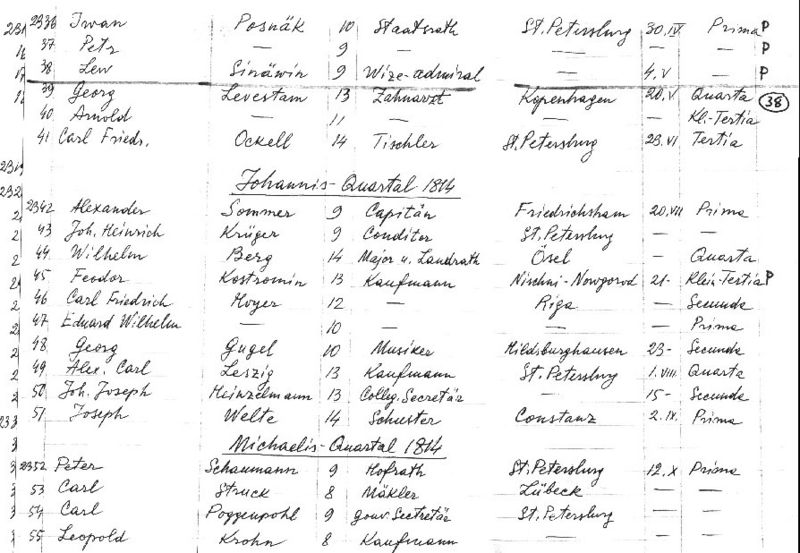 2336 Iwan Posnäk 10 Staatsrath St. Petersburg 30.IV. Prima P
37 Petr — 9 — — — — P
38 Lew Sinäwin 9 Wize-admiral — 4.V — P
39 Georg Levestam 13 Zahnarzt Kopenhagen 20.V Quarta 38
40 Arnold — 11 — — — Kl.-Tertia
41 Carl Friedr. Ockell 14 Tischler St. Petersburg 23.VI Tertia
Johannis-Quartal 1814
2342 Alexander Sommer 9 Capitän Friedrichsham 20.VII Prima
43 Joh. Heinrich Krüger 9 Conditor St. Petersburg — —
44 Wilhelm Berg 14 Major u. Landrath Ösel — Quarta
45 Feodor Kostromin 13 Kaufmann Nischni-Nowgorod 21- Klein-Tertia P
46 Carl Friedrich Hoyer 12 — Riga — Secunda
47 Eduard Wilhelm — 10 — — — Prima
48 Georg Gugel 10 Musiker Hildburghausen 23- Secunda
49 Alex. Carl Leszig 13 Kaufmann St. Petersburg 1.VIII Quarta
50 Joh. Joseph Heinzelmann 13 Colleg. Secretär — 15- Secunda
51 Joseph Welte 14 Schuster Constanz 2.IX. Prima
Michaelis-Quartal 1814
2352 Peter Schaumann 9 Hofrath St. Petersburg 12.X Prima
53 Carl Struck 8 Mäkler Lübeck — —
54 Carl Poggenpohl 9 Gouv. Secretär St. Petersburg — —
55 Leopold Krohn 8 Kaufmann — — —